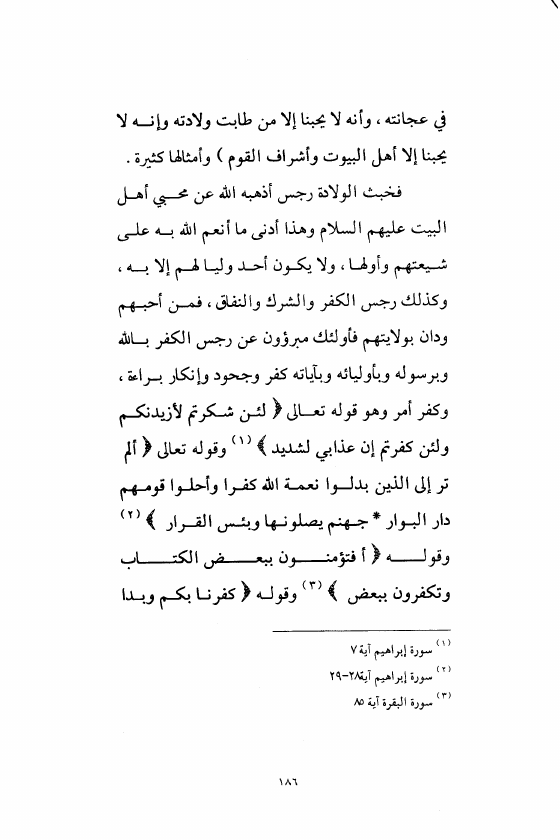 في عجانته ، وأنه لا يحبنا إلا من طابت ولادته وإنـــه لا
يحبنا إلا أهل البيوت وأشراف القوم ) وأمثالها كثيرة .
فخبث الولادة رجس أذهبه الله عن محـــبي أهـل
البيت عليهم السلام وهذا أدنى ما أنعم الله بـه علـى
شـيعتهم وأولهـا ، ولا يكـون أحـد وليـا لهـم إلا بـه ،
وكذلك رجس الكفر والشرك والنفاق ، فمـن أحبـهم
ودان بولايتهم فأولئك مبرؤون عن رجس الكفر بـالله
وبرسوله وبأوليائه وبآياته كفر وجحود وإنكار بـراءة ،
وكفر أمر وهو قوله تعـالى ﴿ لئـن شـكرتم لأزيدنكـم
ولئن كفرتم إن عذابي لشديد ﴾ (١) وقوله تعالى ﴿ ألم
تر إلى الذين بدلـوا نعمـة الله كفـرا وأحلـوا قومـهم
دار البـوار * جـهنم يصلونـها وبئـس القـرار ﴾ (٢)
وقولـــه ﴿ أ فتؤمنـــون ببعـــض الكتـــاب
وتكفرون ببعض ﴾ (٣) وقولـه ﴿ كفرنـا بكـم وبـدا
(١) سورة إبراهيم آية ٧
(٢) سورة إبراهيم آية٢٨-٢٩
(٣) سورة البقرة آية ٨٥
١٨٦